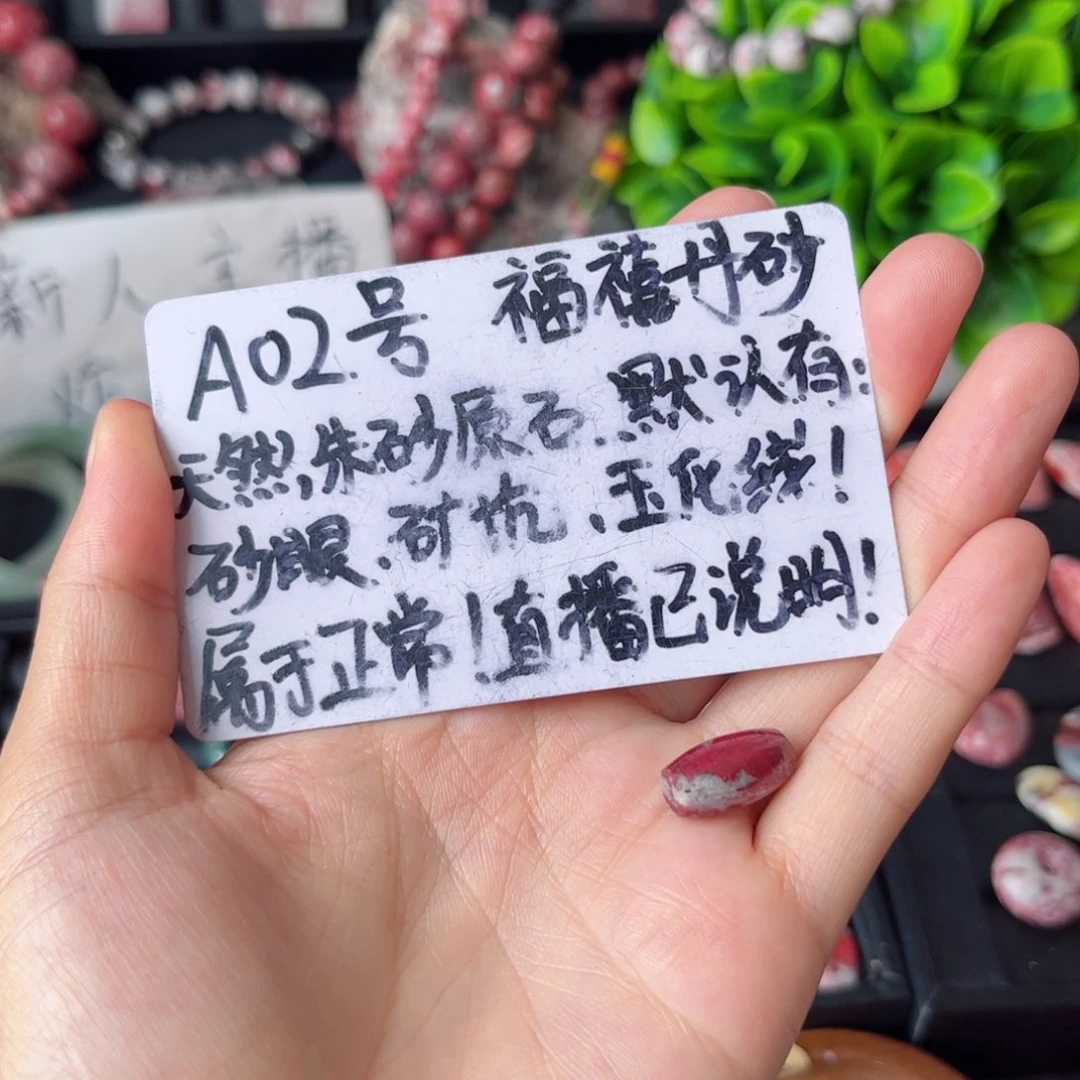 新人主播
A02号 福禧丹砂
天然,朱砂原石.默认有:
砂眼.矿坑.玉化线!
属于正常!直播已说明!